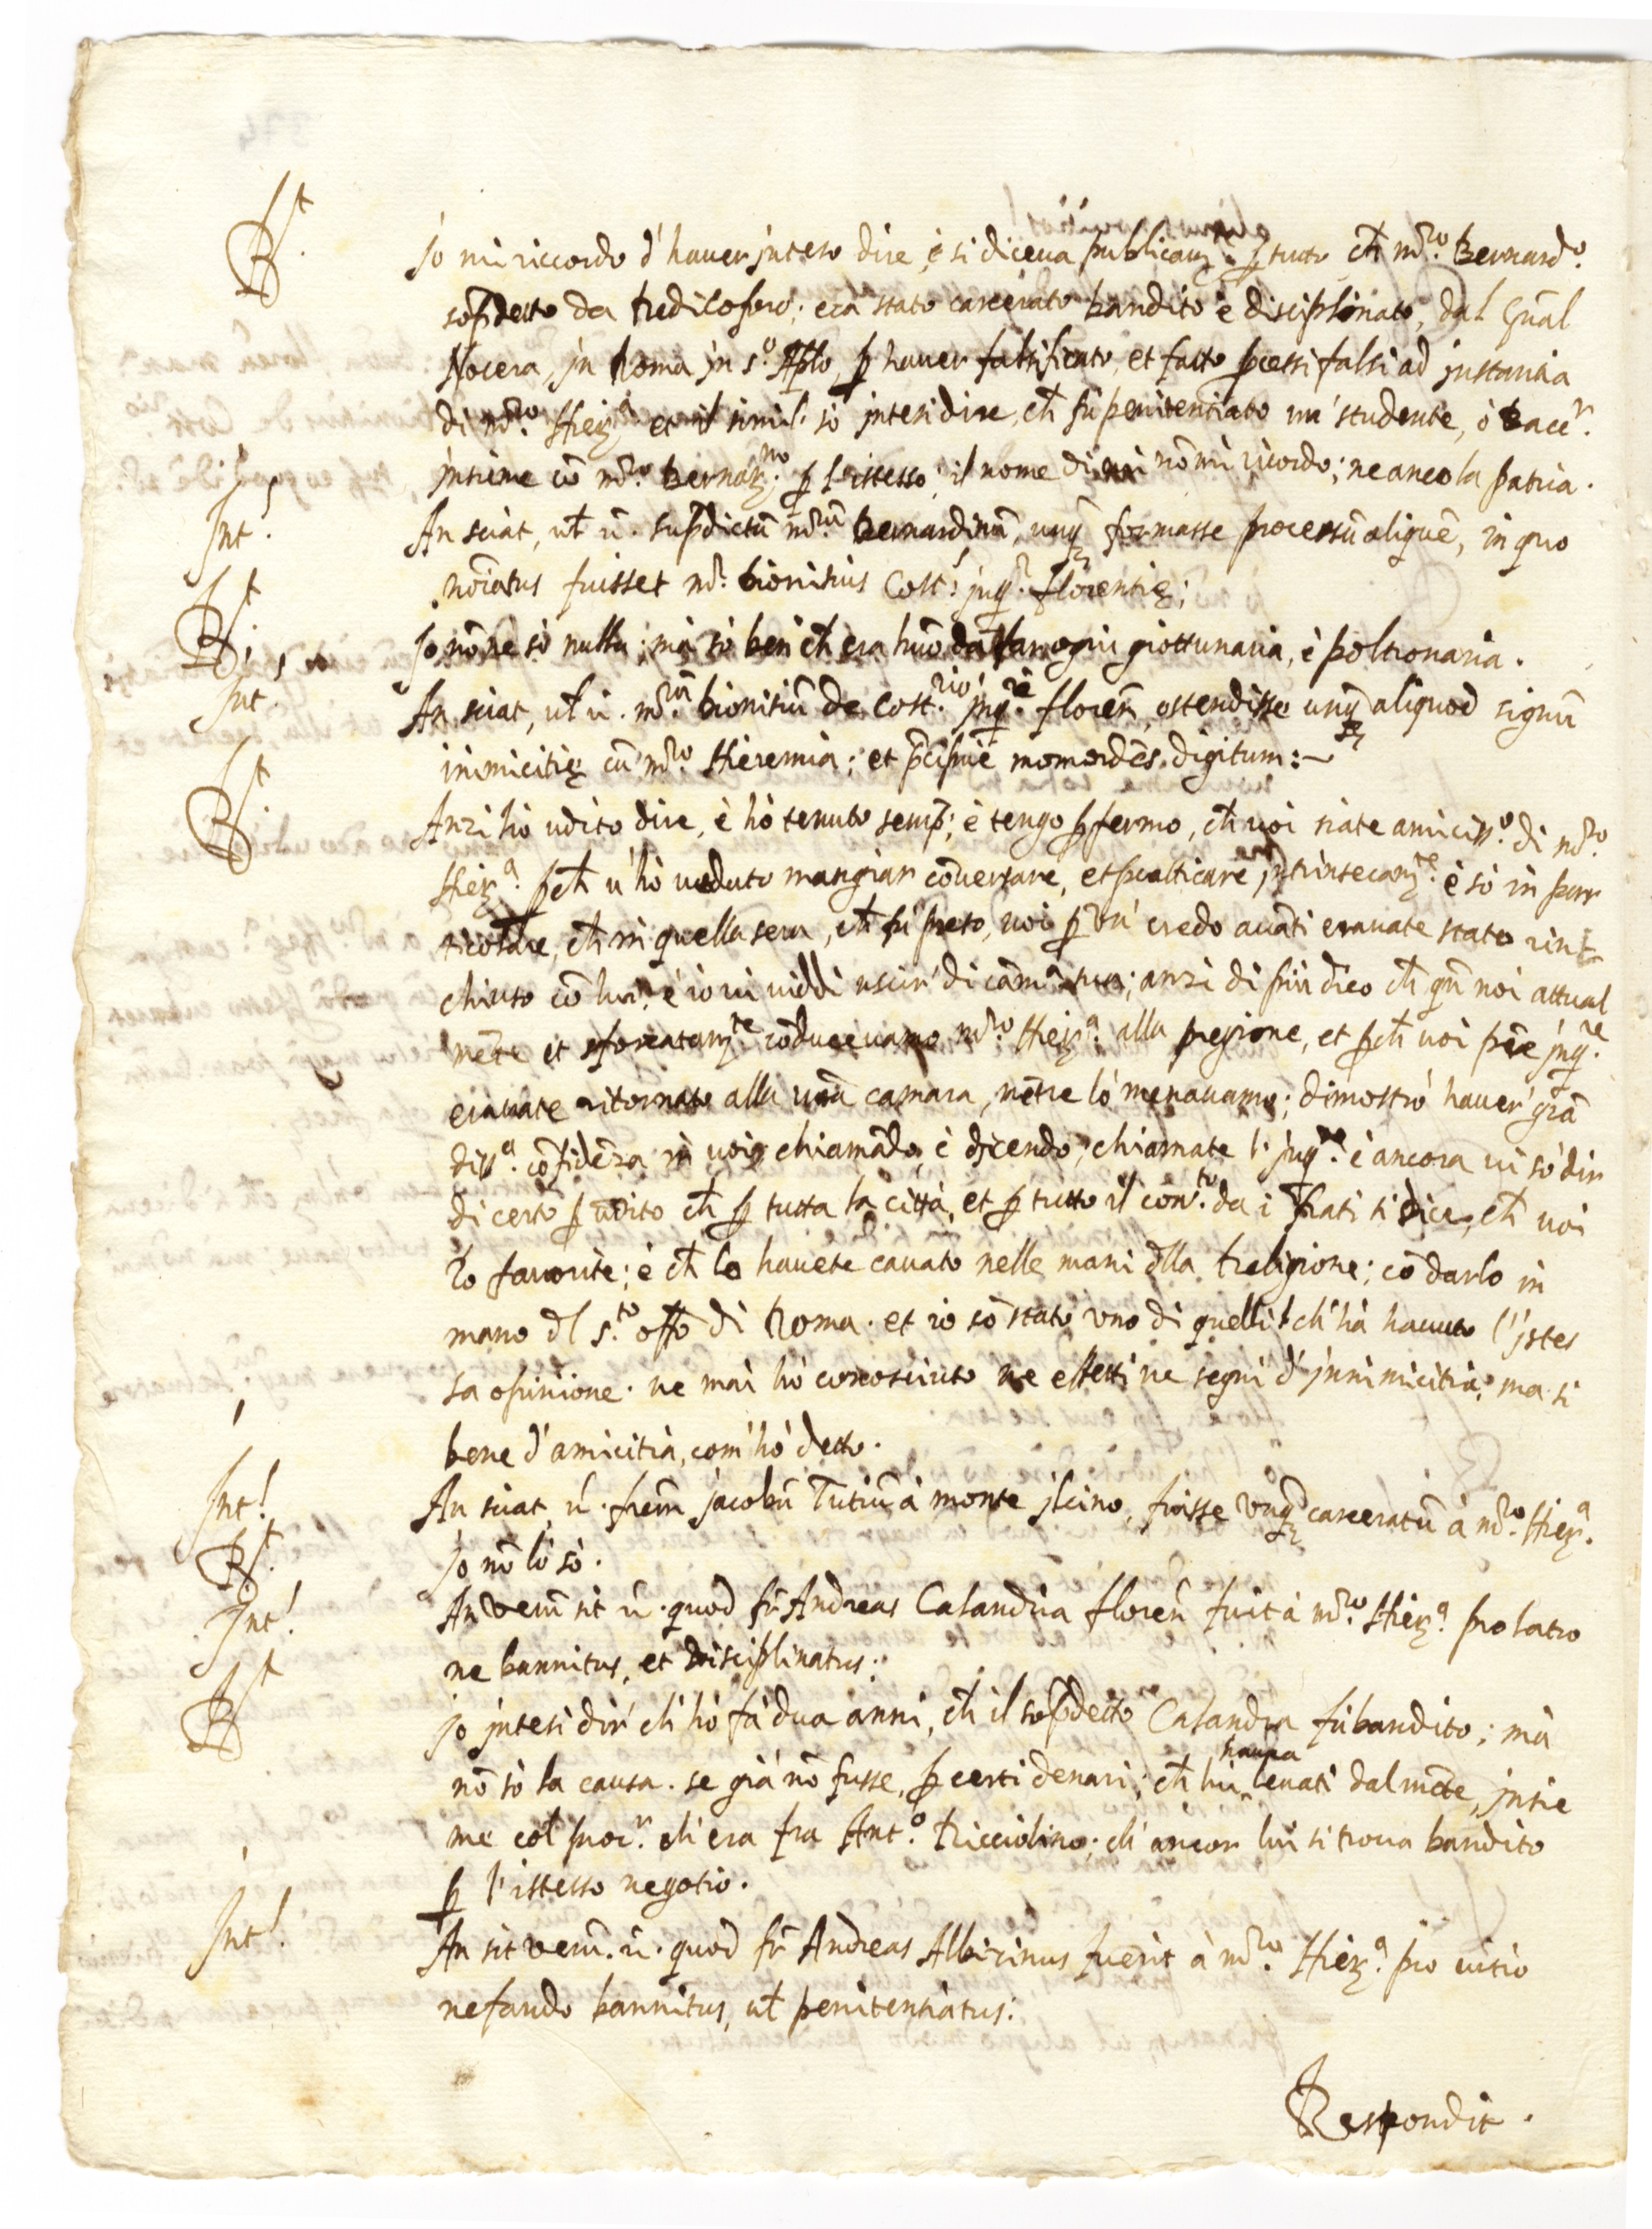 R.t Io mi riccordo d'hauer inteso dire, è si diceua publicam.te p tutto ch m.ro Bernard.o
sop.detto da tredicosero; era stato carcerato bandito è disciplinato, dal Gnãl
Nocera, in Roma in s.o Apl̃o, p hauer falsificato, et fatto ꝓcessi falsi ad instantia
di m.ro Hier.a et il simil' sò intesi dire, ch fù penitentiato un' studente, ò Bacc.r
insieme cõ m.ro Bernar.no p l'istesso; il nome di nõ mi ricordo; ne anco la patria.
Int! An sciat, ul̃ ũ. sup̃dictũ m.rũ Bernardinũ, unq̃ formasse processũ aliquẽ, in quo
noĩatus fuisset m.r Dionisius Cost.! inq.r florentię;
R.t Io nõ ne sò nulla; mà sò ben ch era huõ da far ogni giottunaria, è poltronaria.
Int. An sciat, ul̃ ũ. m.rũ Dionisiũ de Cost.rio inq.re floreñ, ostendisse unq̃ aliquod signũ
inimicitię cũ m.ro Hieremia; et p̃cipuè momordẽs digitum:~
R.t Anzi hò udito dire, è hò tenuto semp̃; è tengo p fermo, ch uoi siate amiciss.o di m.ro
Hier.a pch u' hò ueduto mangiar cõuersare, et pratticare intrinsecam.te è sò in par
ticolare, ch in quella sera, ch fù preso, uoi p un' credo auãti erauate stato rin
chiuso cõ lui, è io ui uiddi uscir' di cam.a sua; anzi di più dico ch qñ noi attual
mẽte et sforzatam.te cõduceuamo m.ro Hier.a alla pregione, et pch uoi pr̃e inq.re
erauate ritornato alla ur̃a camara, mẽtre lò menauamo; dimostrò hauer' grã
diss.a cõfidẽza in uoi chiamãdo, è dicendo; chiamate l' inq.re è ancora ui sò dir
di certo p udito ch p tutta la città, et p tutto il con.to da i frati si dice, ch uoi
lo fauorite; è ch lo hauete cauato nelle mani dlla religione; cõ darlo in
mano dl s.to off.o di Roma. et io sò stato uno di quelli ch' hà hauuto l' istes
sa opinione. ne mai hò conosciuto ne effetti ne segni d' innimicitia, ma si
bene d' amicitia, com' hò detto.
Int! An sciat, ũ. frẽm Jacobũ Tutiũ à monte ilcino, fuisse unq̃ carceratũ à m.ro Hier.a
R.t Io nõ lò sò.
Int! An verũ sit ũ. quod fr̃ Andreas Calandria floreñ fuit à m.ro Hier.a pro latro
ne bannitus, et disciplinatus;
R.t Io intesi dir' ch' hò fà dua anni, ch il sop̃detto Calandra fù bandito; mà
nõ sò la causa. se già nõ fusse, p certi denari; ch lui haueua leuati dal mõte, insie
me col proc.r ch' era fra Ant.o Ricciolino; ch' ancor lui si troua bandito
p l' istesso negotio.
Int! An sit verũ. ũ. quod fr̃ Andreas Albicinus fuerit à m.ro Hier.a pro uitio
nefando bannitus, ul̃ penitentiatus:
Respondit.